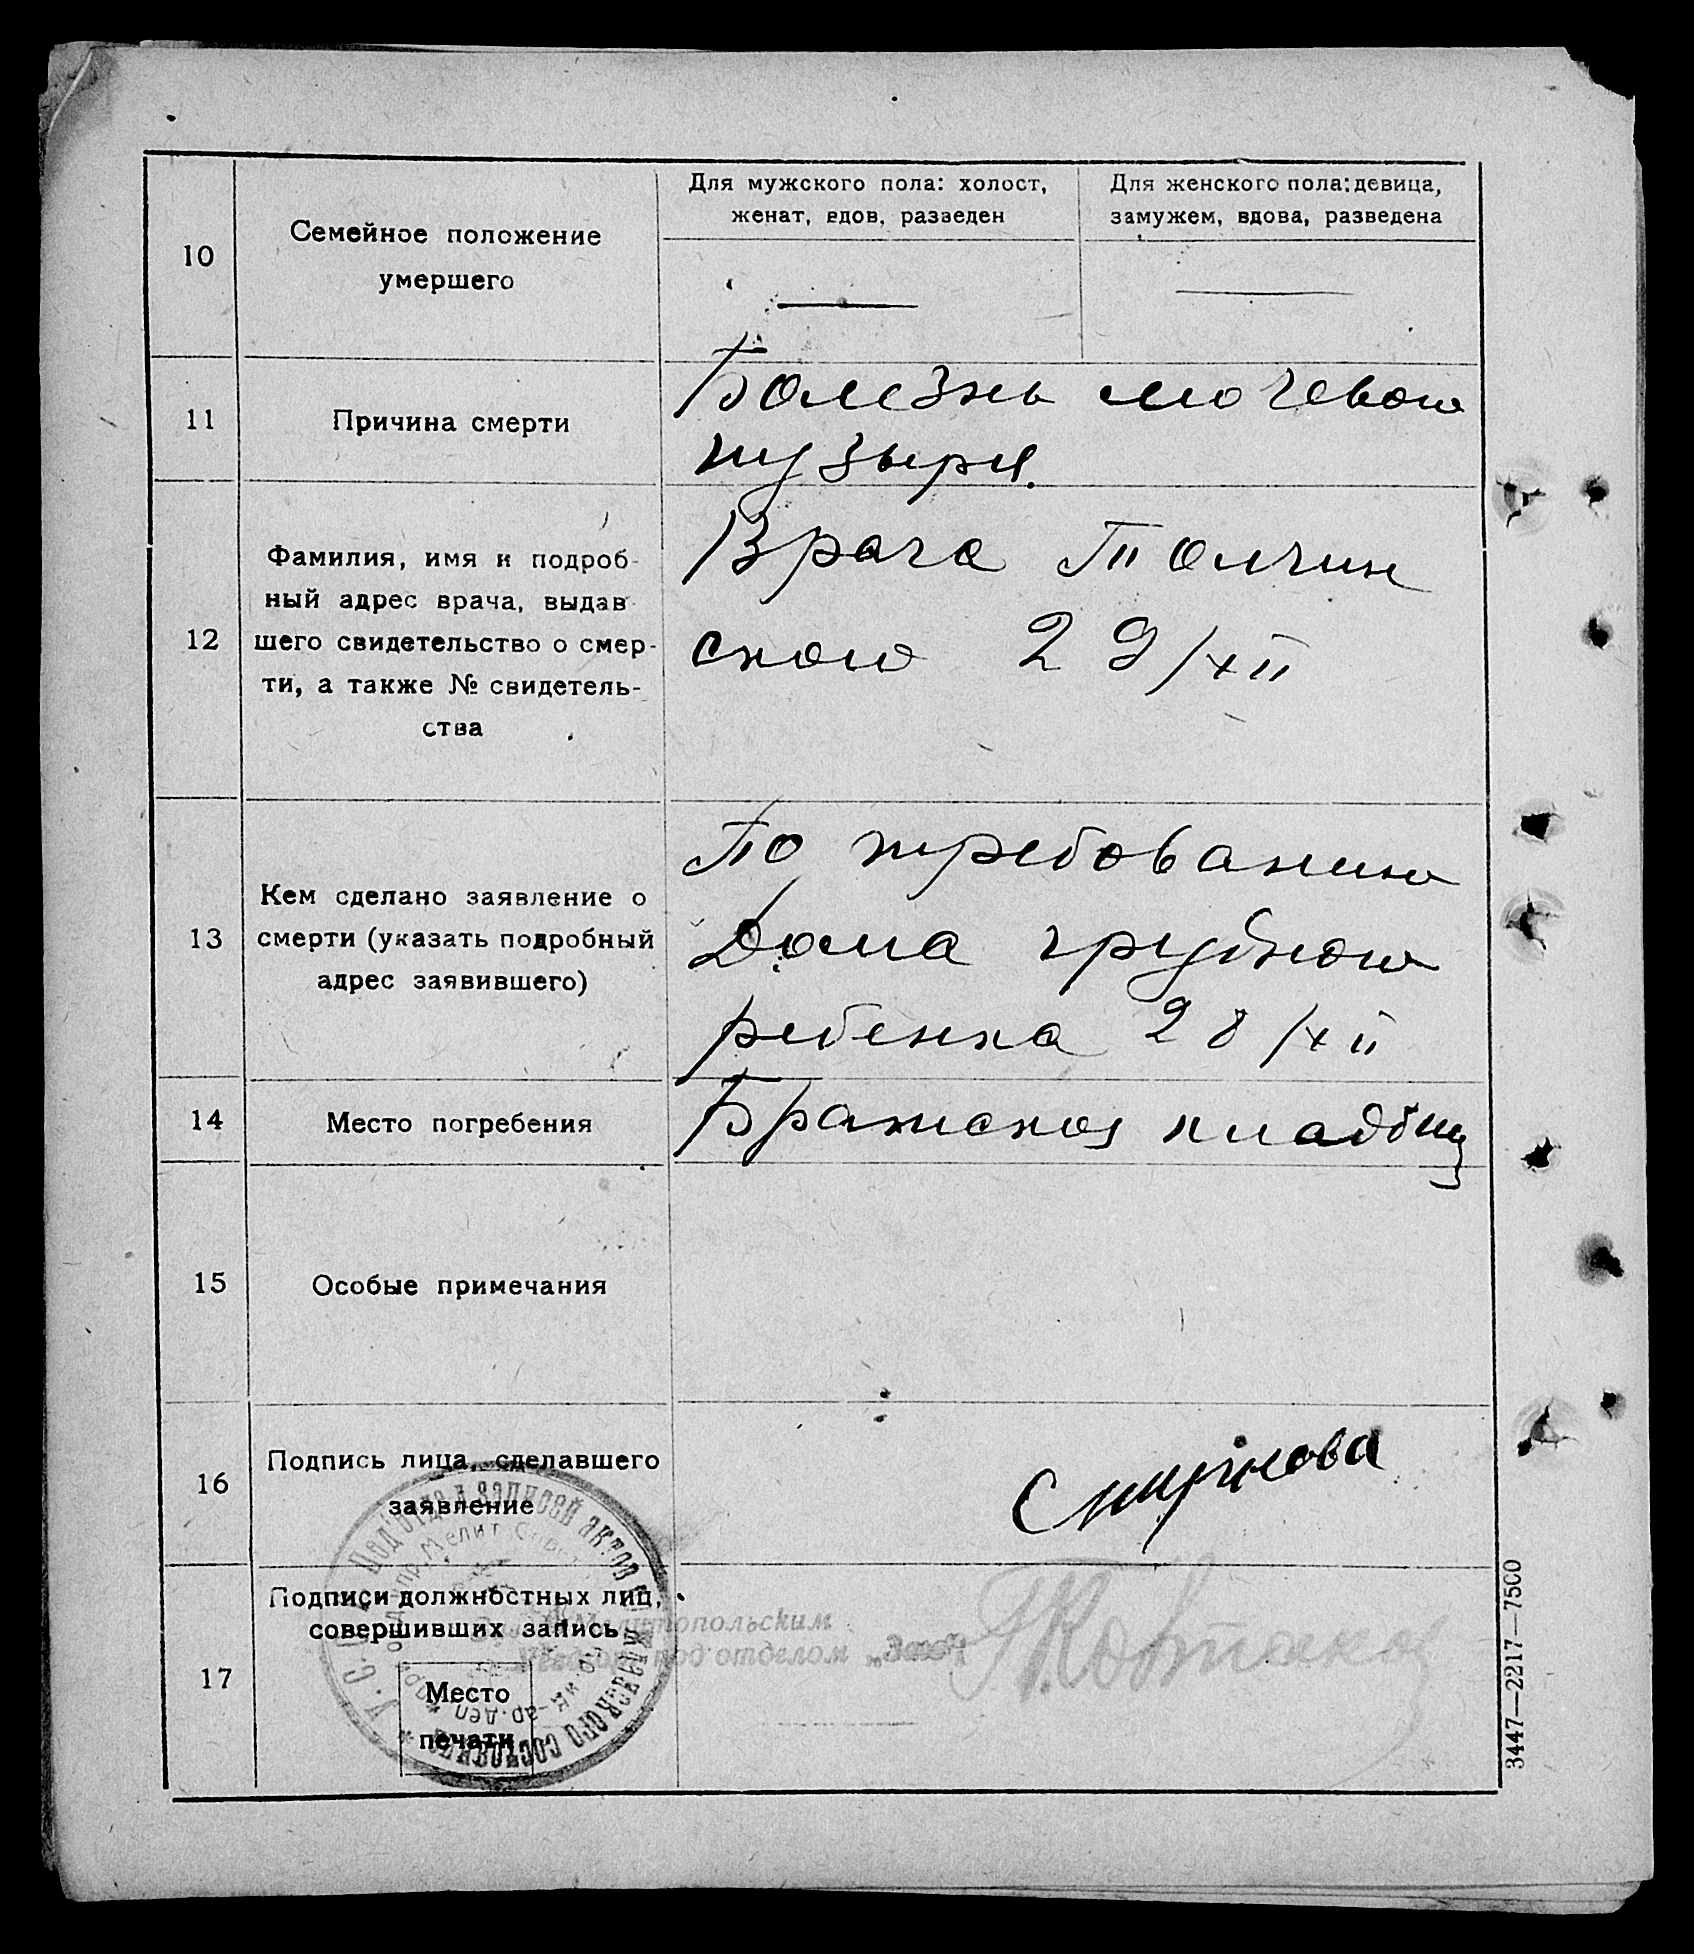 Для мужского пола: холост,
женат, вдов, разведен
Для женского пола: девица,
замужем, вдова, разведена
10
Семейное положение
умершего
11
Причина смерти
Болезнь мочевого
пузыря.
12
Фамилия, имя и подроб-
ный адрес врача, выдав-
шего свидетельство о смер-
ти, а также № свидетель-
ства
Врача Толчин
ского 29/XII
13
Кем сделано заявление о
смерти (указать подробный
адрес заявившего)
По требованию
Дома грудного
ребенка 28/XII
14
Место погребения
Братское кладбищ
15
Особые примечания
16
Подпись лица, сделавшего
заявление
Смирнова
17
Подписи должностных лиц,
совершивших запись
Место
печати
Под'отдел записей актов гражданского состояния
Мелитопольским
под'отделом „Загс"
3447—2217—7500